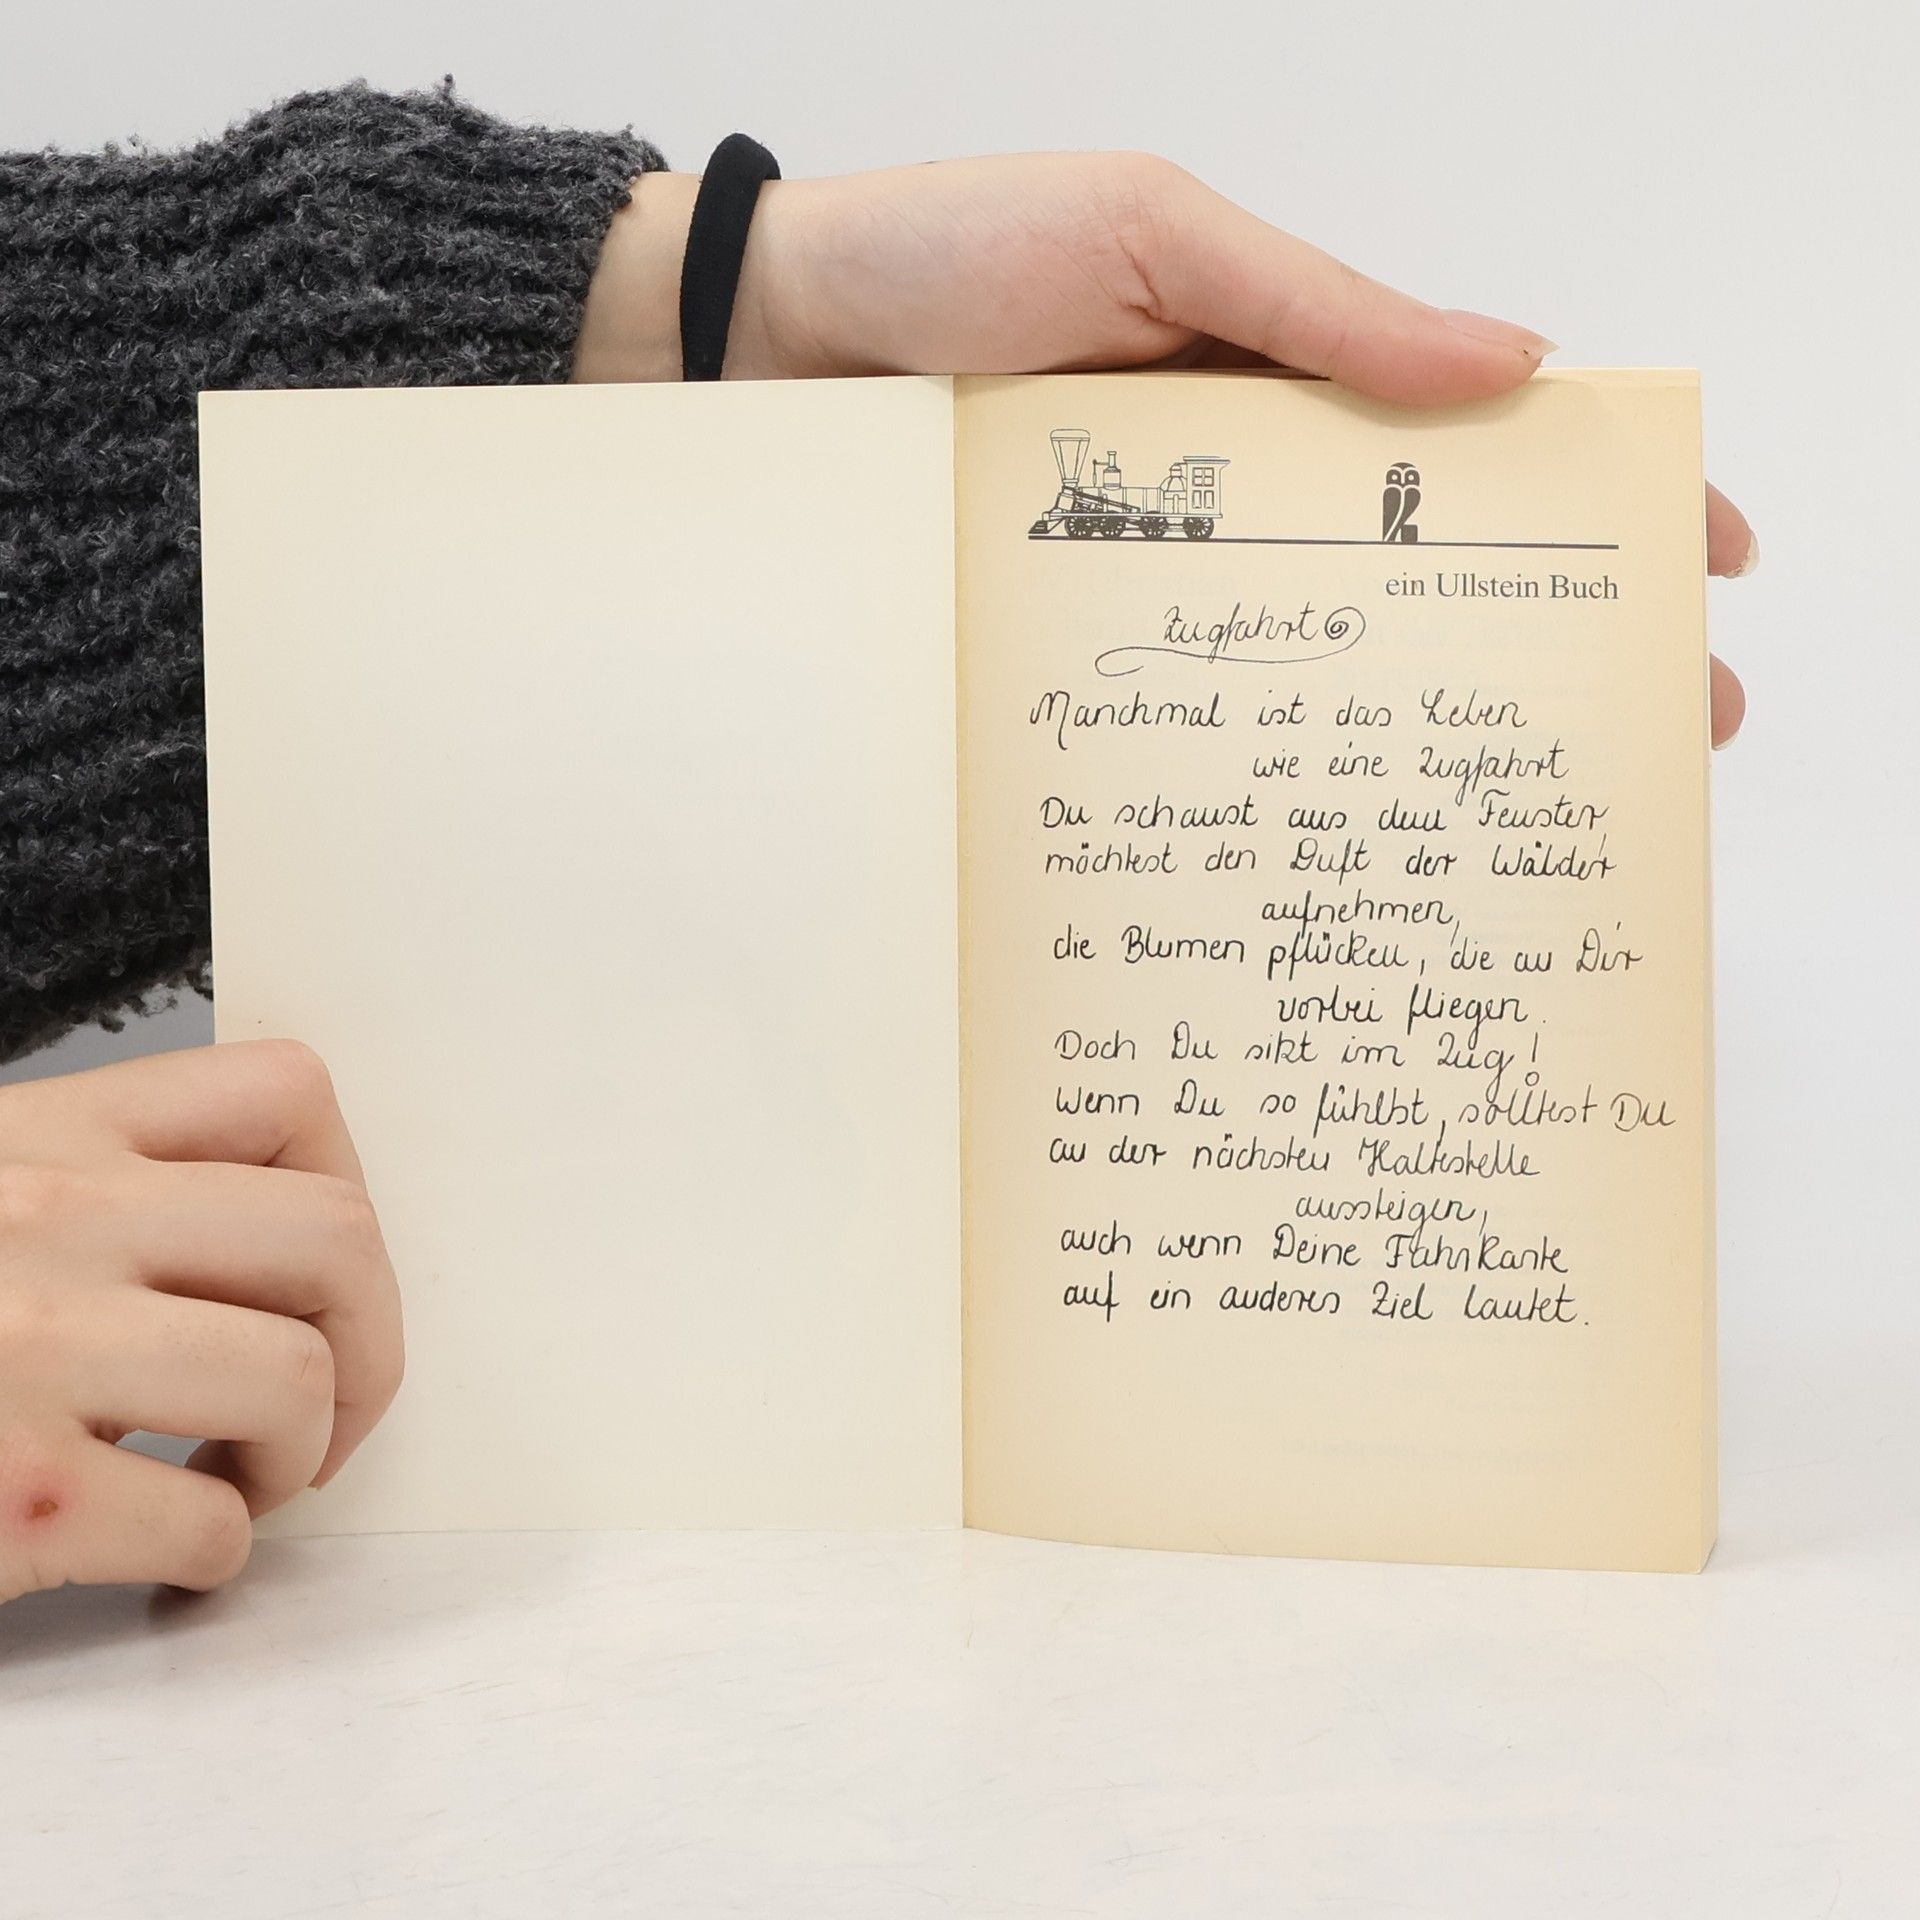 ein Ullstein Buch
Zugfahrt
Manchmal ist das Leben
wie eine Zugfahrt
Du schaust aus dem Fenster,
möchtest den Duft der Wälder
aufnehmen,
die Blumen pflücken, die an Dir
vorbei fliegen.
Doch Du sitzt im Zug!
Wenn Du so fühlst, solltest Du
an der nächsten Haltestelle
aussteigen,
auch wenn Deine Fahrkarte
auf ein anderes Ziel lautet.